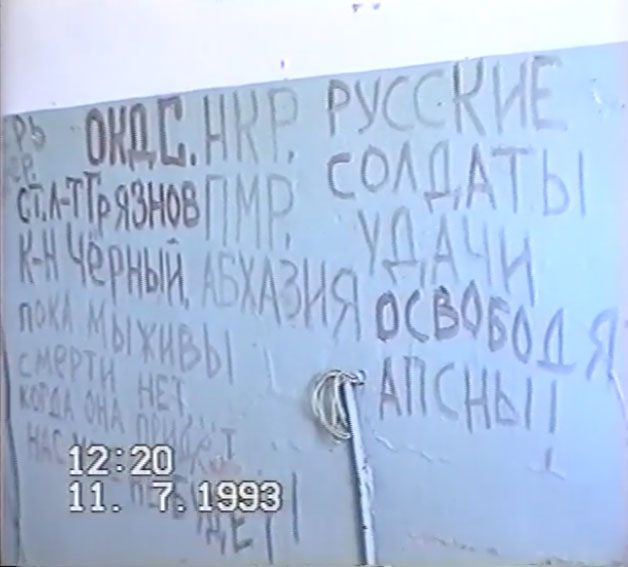 РЬ
СР.
ОКДС.
СТ.Л-Т ГРЯЗНОВ
К-Н ЧЁРНЫЙ.
НКР.
ПМР.
АБХАЗИЯ
ПОКА МЫ ЖИВЫ
СМЕРТИ НЕТ,
КОГДА ОНА ПРИДЁТ
НАС
БУДЕТ!
РУССКИЕ
СОЛДАТЫ
УДАЧИ
ОСВОБОДЯ
АПСНЫ!!
12:20
11. 7.1993